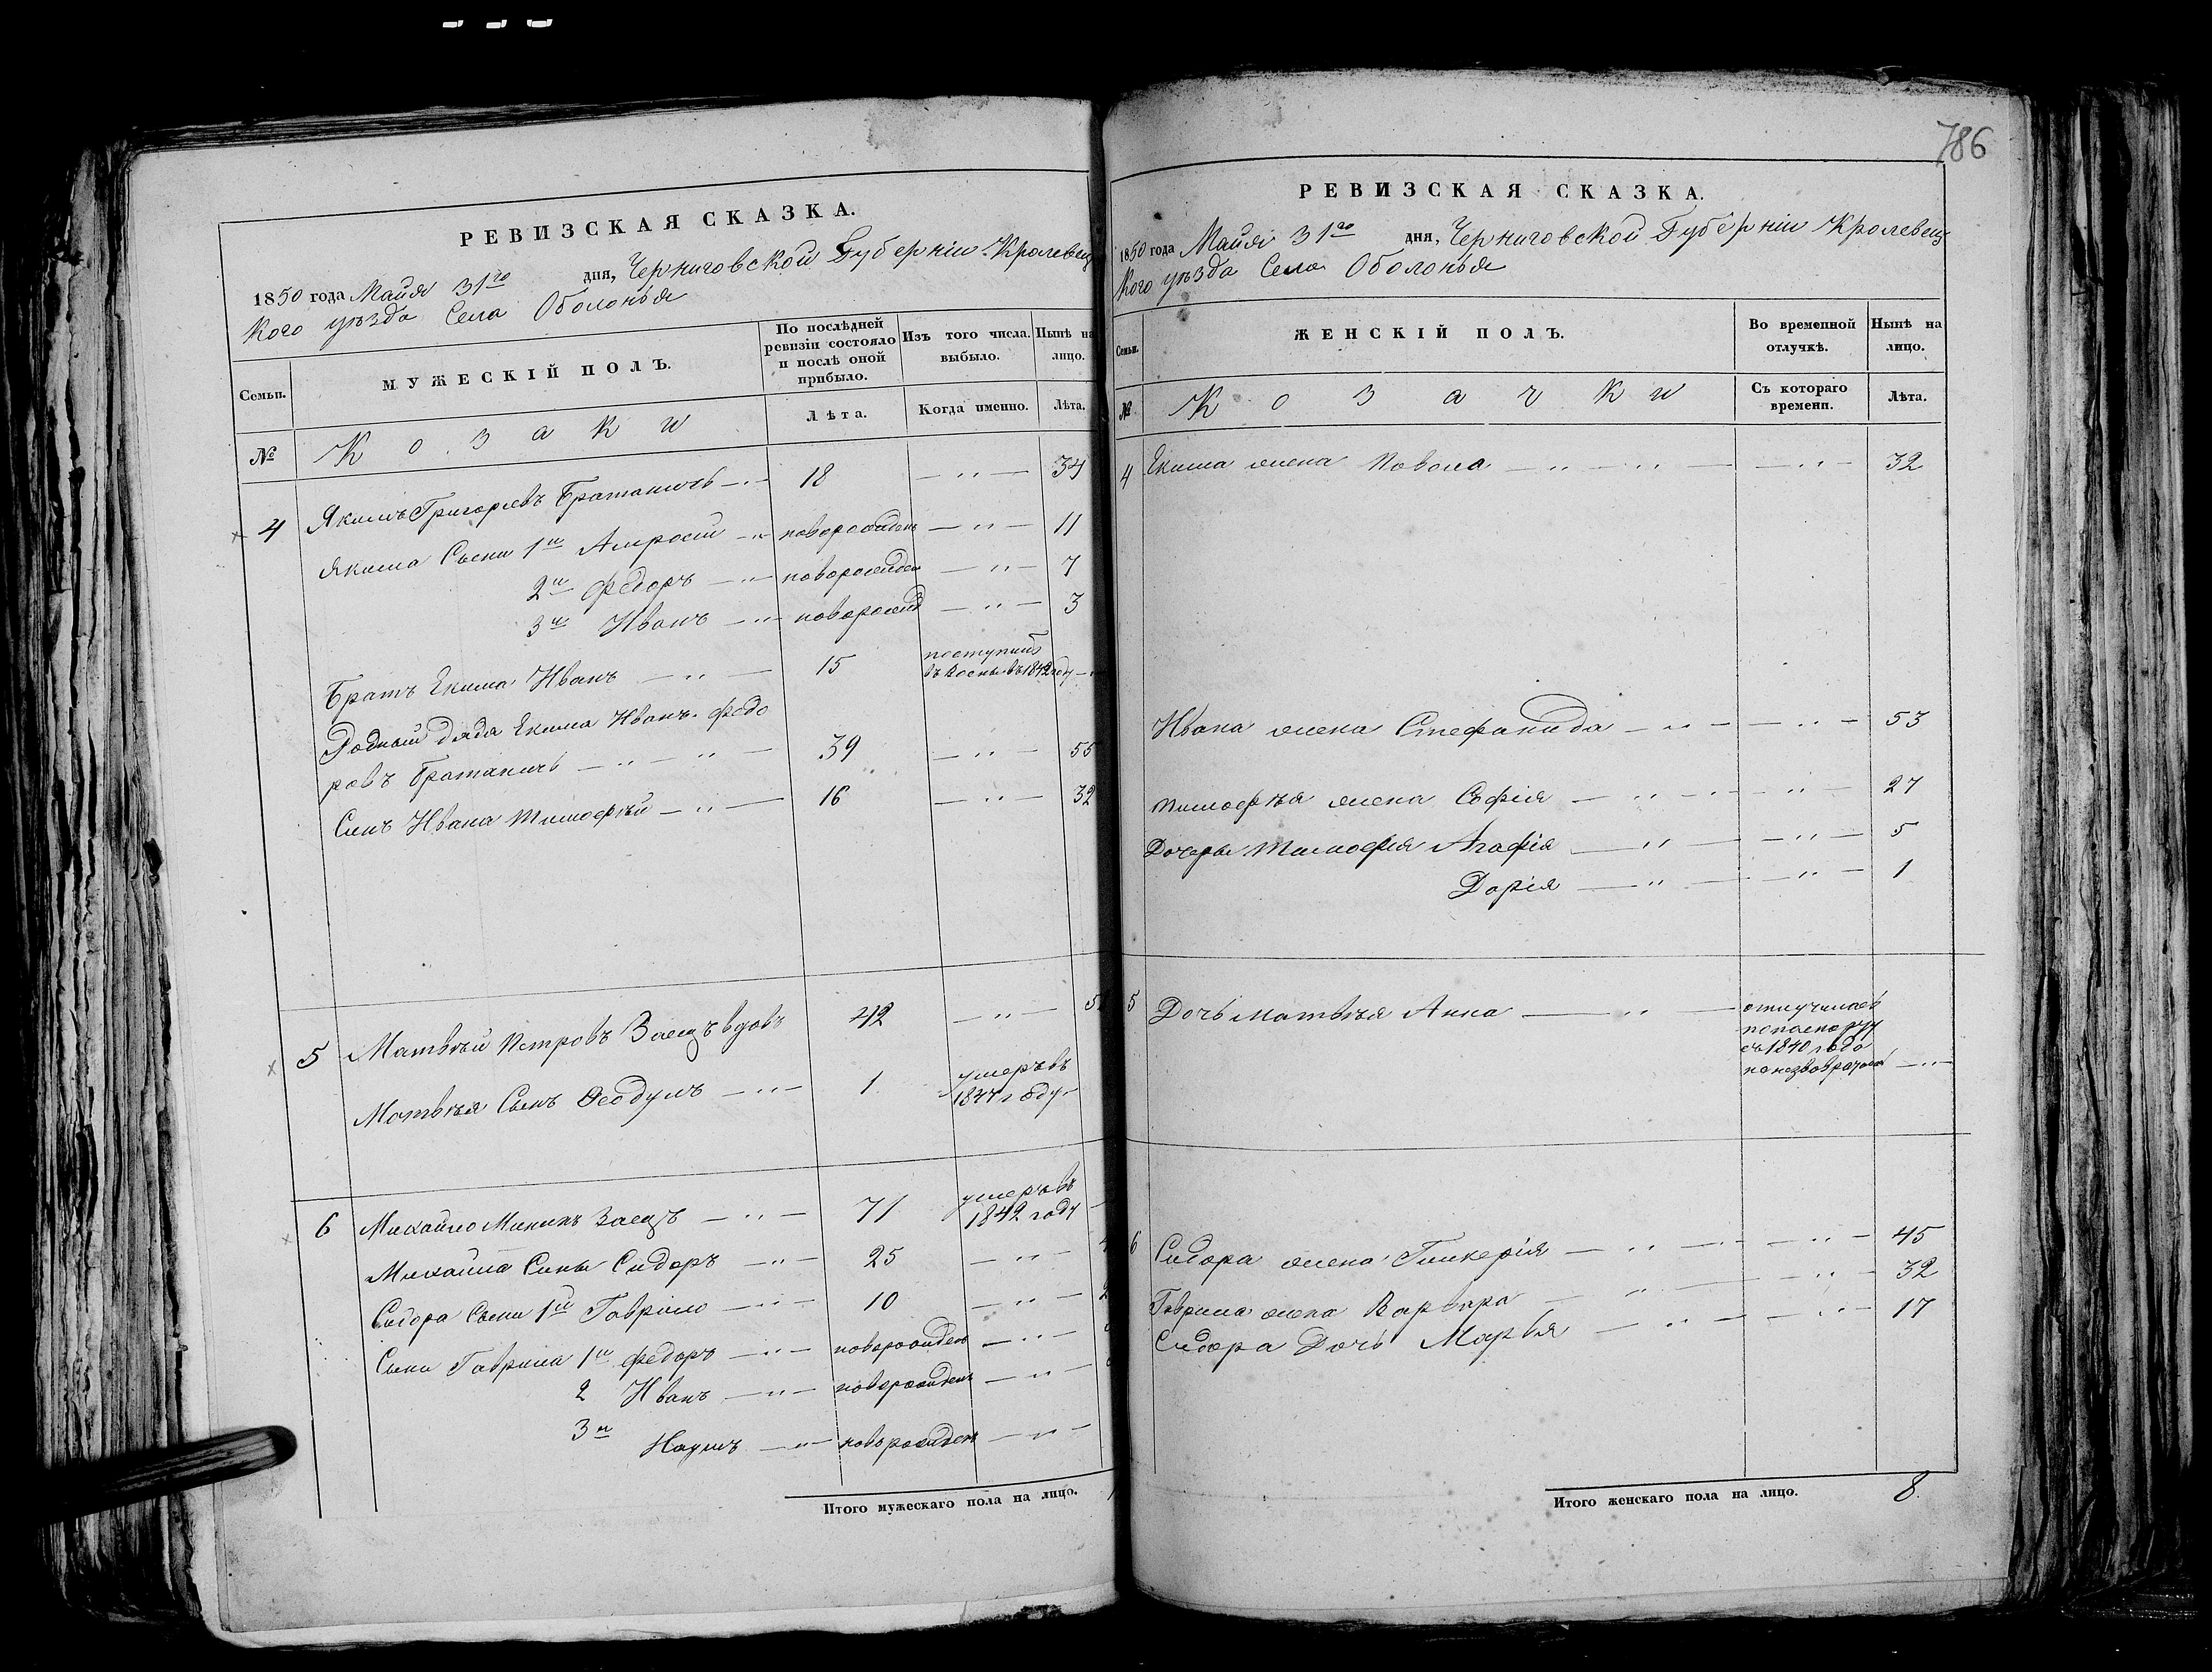 РЕВИЗСКАЯ СКАЗКА.
1850 года Майя 31го дня, Черниговской Губернии Кролевец
кого уѣзда Села Оболонья
Семьи.
МУЖЕСКІЙ ПОЛЪ.
По послѣдней ревизіи состояло и послѣ оной прибыло.
Изъ того числа выбыло.
Нынѣ на лицо.
№
Козаки
Лѣта.
Когда именно.
Лѣта.
4 Якимъ Григорьевъ Братаничь — " — 18 — " — 34
Якима Сыни 1й Амросий — " — новорожденъ — " — 11
2й Федоръ — " — новорожден — " — 7
3й Иванъ — " — новорожд — " — 3
Братъ Екима Иванъ — " — 15 поступилъ въ 1842 году
Родный дядя Екима Иванъ Федо
ровъ Братаничь — " — " — 39 — " — 55
Синъ Ивана Тимофѣй — " — 16 — " — 32
5 Матвѣй Петровъ Заецъ вдовъ 42 — " —
Матвѣя Сынъ Феодулъ — " — 1 умеръ въ 1847 году
6 Михайло Мининъ Заецъ — " — 71 умеръ въ 1842 году
Михайла Сины Сидоръ — " — 25 — " —
Сидора Сыни 1й Гаврило — " — 10 — " —
Сыни Гаврила 1й Федоръ — " — новорожденъ — " —
2 Иванъ — " — новорожденъ — " —
3й Наумъ — " — новорожденъ — " —
Итого мужескаго пола на лицо.
786
РЕВИЗСКАЯ СКАЗКА.
1850 года Майя 31го дня, Черниговской Губерніи Кролевец
кого уѣзда Села Оболонья
Семьи.
ЖЕНСКІЙ ПОЛЪ.
Во временной отлучкѣ.
Нынѣ на лицо.
№
Козачки
Съ котораго времени.
Лѣта.
4 Екима жена — " — " — — " — 32
Ивана жена Стефанида — " — — " — 53
Тимофѣя жена Софія — " — — " — 27
Дочеры Тимофея Агафія — " — — " — 5
Дарія — " — — " — 1
5 Дочь Матвѣя Анна — " — отлучилась
по паспорту
съ 1840 года
— " —
6 Сидора жена Гликерія — " — — " — 45
Гаврила жена Варвара — " — — " — 32
Сидора Дочь Марья — " — — " — 17
Итого женскаго пола на лицо. 8.